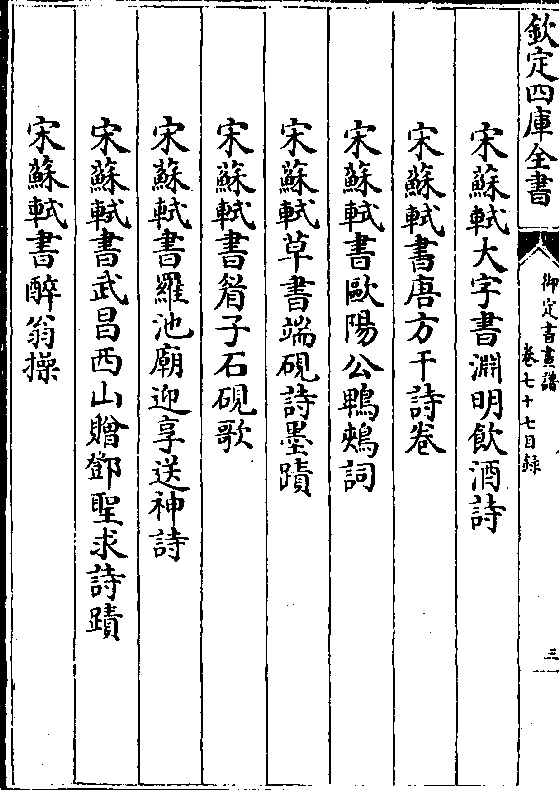 欽定四庫全書
御定書畫譜
卷七十七目録
三
宋蘇軾大字書淵明飲酒詩
宋蘇軾書唐方干詩卷
宋蘇軾書歐陽公鴨鵊詞
宋蘇軾草書端硯詩墨蹟
宋蘇軾書脊子石硯歌
宋蘇軾書羅池廟迎享送神詩
宋蘇軾書武昌西山贈鄧聖求詩蹟
宋蘇軾書醉翁操